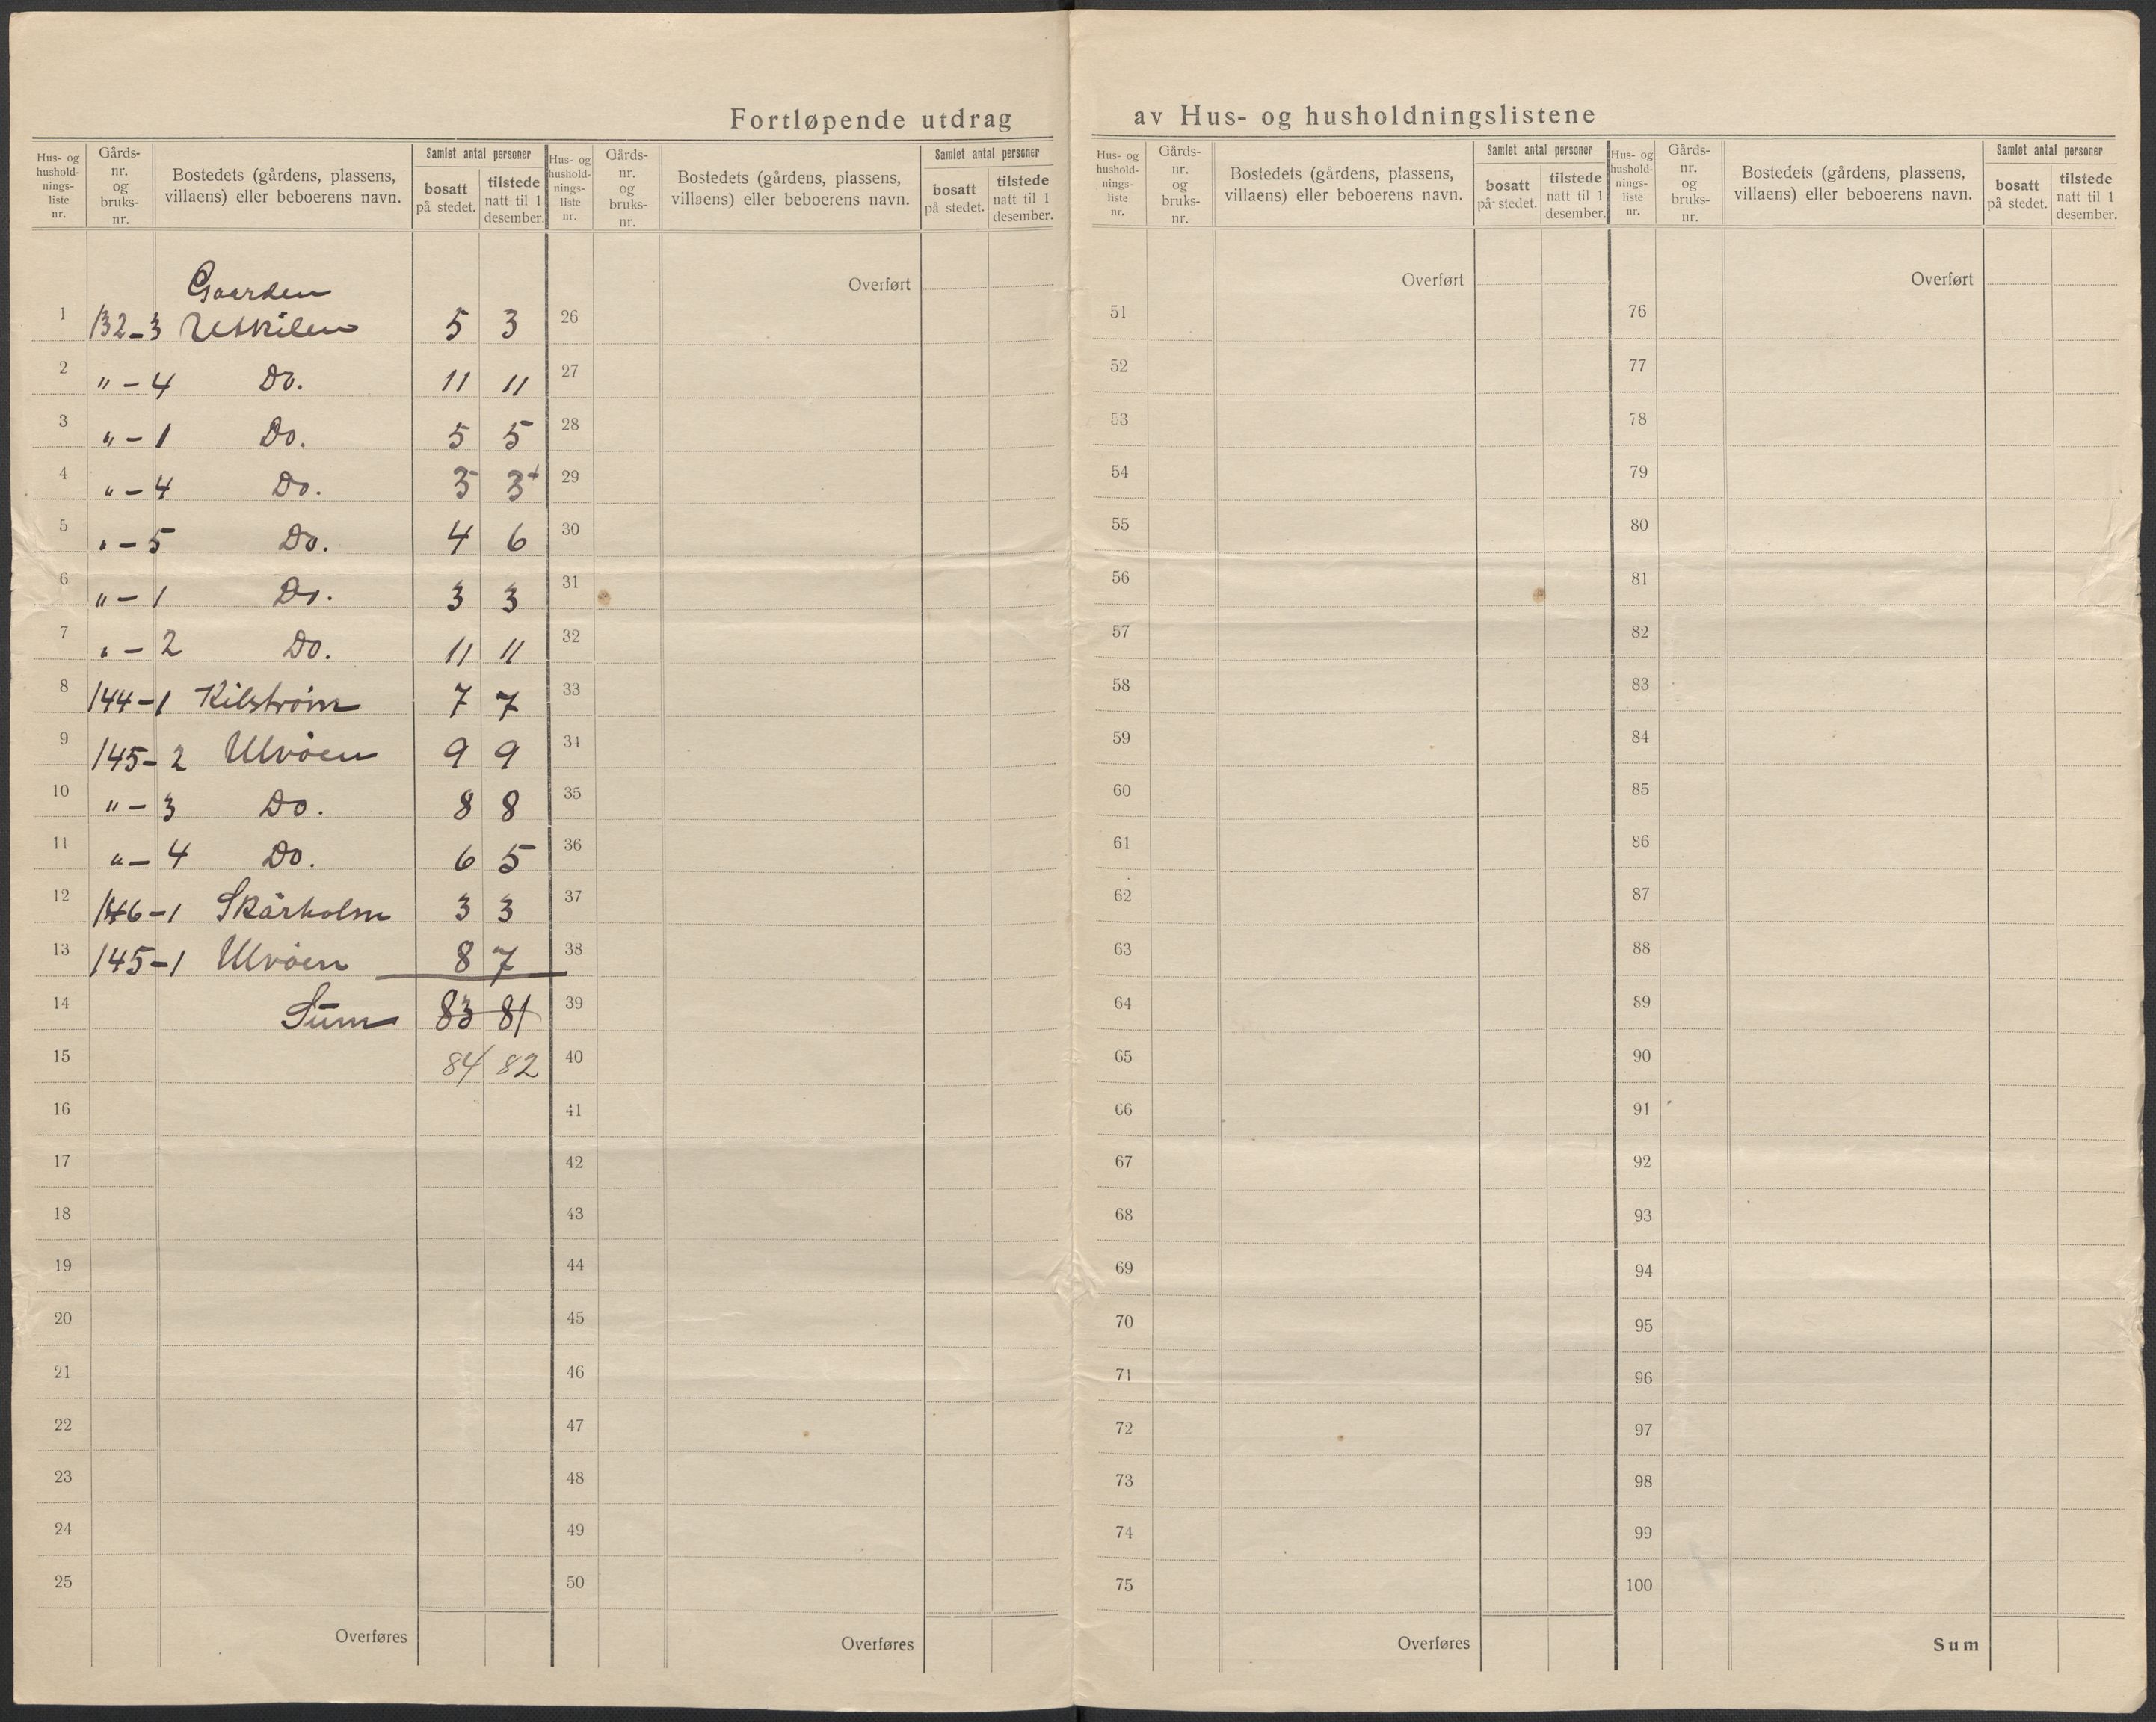 Fortløpende utdrag av Hus- og husholdningslistene
Hus- og hushold-nings-liste nr. Gårds-nr. og bruks-nr. Bostedets (gårdens, plassens, villaens) eller beboerens navn. Samlet antal personer bosatt på stedet. tilstede natt til 1 desember.
Hus- og hushold-nings-liste nr. Gårds-nr. og bruks-nr. Bostedets (gårdens, plassens, villaens) eller beboerens navn. Samlet antal personer bosatt på stedet. tilstede natt til 1 desember.
Hus- og hushold-nings-liste nr. Gårds-nr. og bruks-nr. Bostedets (gårdens, plassens, villaens) eller beboerens navn. Samlet antal personer bosatt på stedet. tilstede natt til 1 desember.
Hus- og hushold-nings-liste nr. Gårds-nr. og bruks-nr. Bostedets (gårdens, plassens, villaens) eller beboerens navn. Samlet antal personer bosatt på stedet. tilstede natt til 1 desember.
Gaarden
1 132-3 Utkilen 5 3
2 " - 4 Do. 11 11
3 " - 1 Do. 5 5
4 " - 4 Do. 3 3
5 " - 5 Do. 4 6
6 " - 1 Do. 3 3
7 " - 2 Do. 11 11
8 144-1 Kilstrøm 7 7
9 145-2 Ulvøen 9 9
10 " - 3 Do. 8 8
11 " - 4 Do. 6 5
12 146-1 Skårholm 3 3
13 145-1 Ulvøen 8 7
14 Sum 83 81
15 84 82
16
17
18
19
20
21
22
23
24
25
Overføres
Overført
26
27
28
29
30
31
32
33
34
35
36
37
38
39
40
41
42
43
44
45
46
47
48
49
50
Overføres
Overført
51
52
53
54
55
56
57
58
59
60
61
62
63
64
65
66
67
68
69
70
71
72
73
74
75
Overføres
Overført
76
77
78
79
80
81
82
83
84
85
86
87
88
89
90
91
92
93
94
95
96
97
98
99
100
Sum